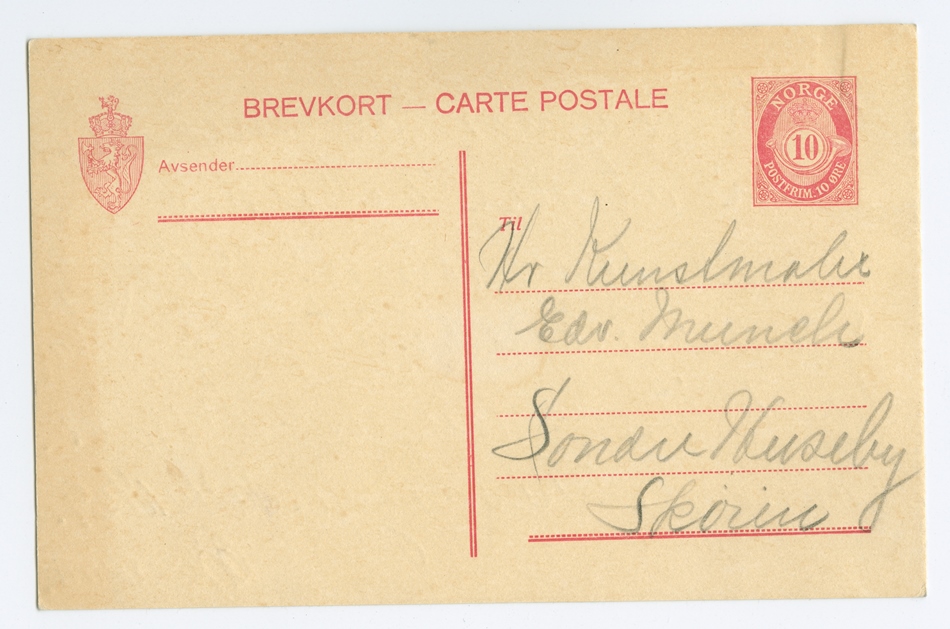 BREVKORT — CARTE POSTALE
NORGE
10
POSTFRIM. 10 ØRE
Avsender
Til
Hr Kunstmaler
Edv. Munch
Søndre Huseby
Skøien